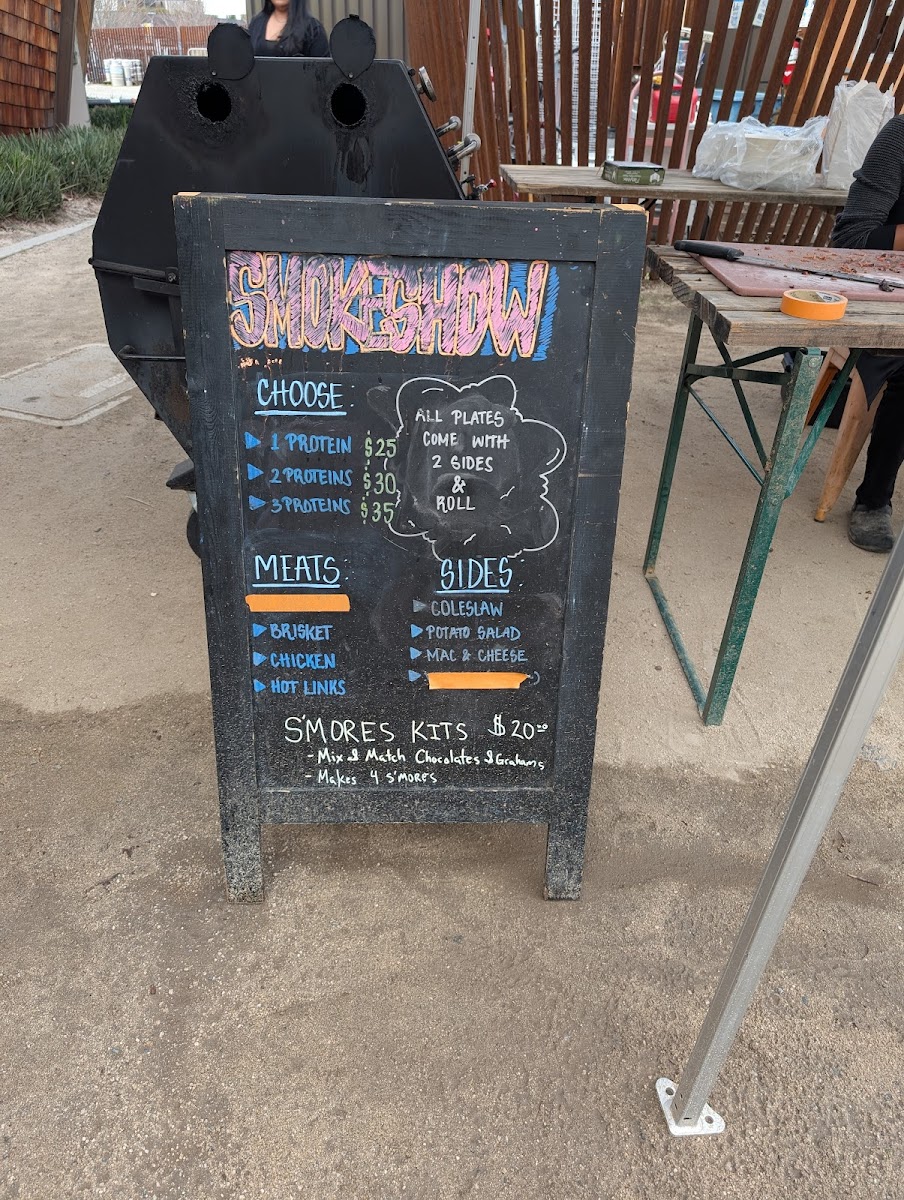 SMOKESHOW
CHOOSE:
1 PROTEIN $25
2 PROTEINS $30
3 PROTEINS $35
ALL PLATES
COME WITH
2 SIDES
&
ROLL
MEATS:
BRISKET
CHICKEN
HOT LINKS
SIDES:
COLESLAW
POTATO SALAD
MAC & CHEESE
S'MORES KITS $20.00
- Mix & Match Chocolates & Grahams
- Makes 4 S'MORES